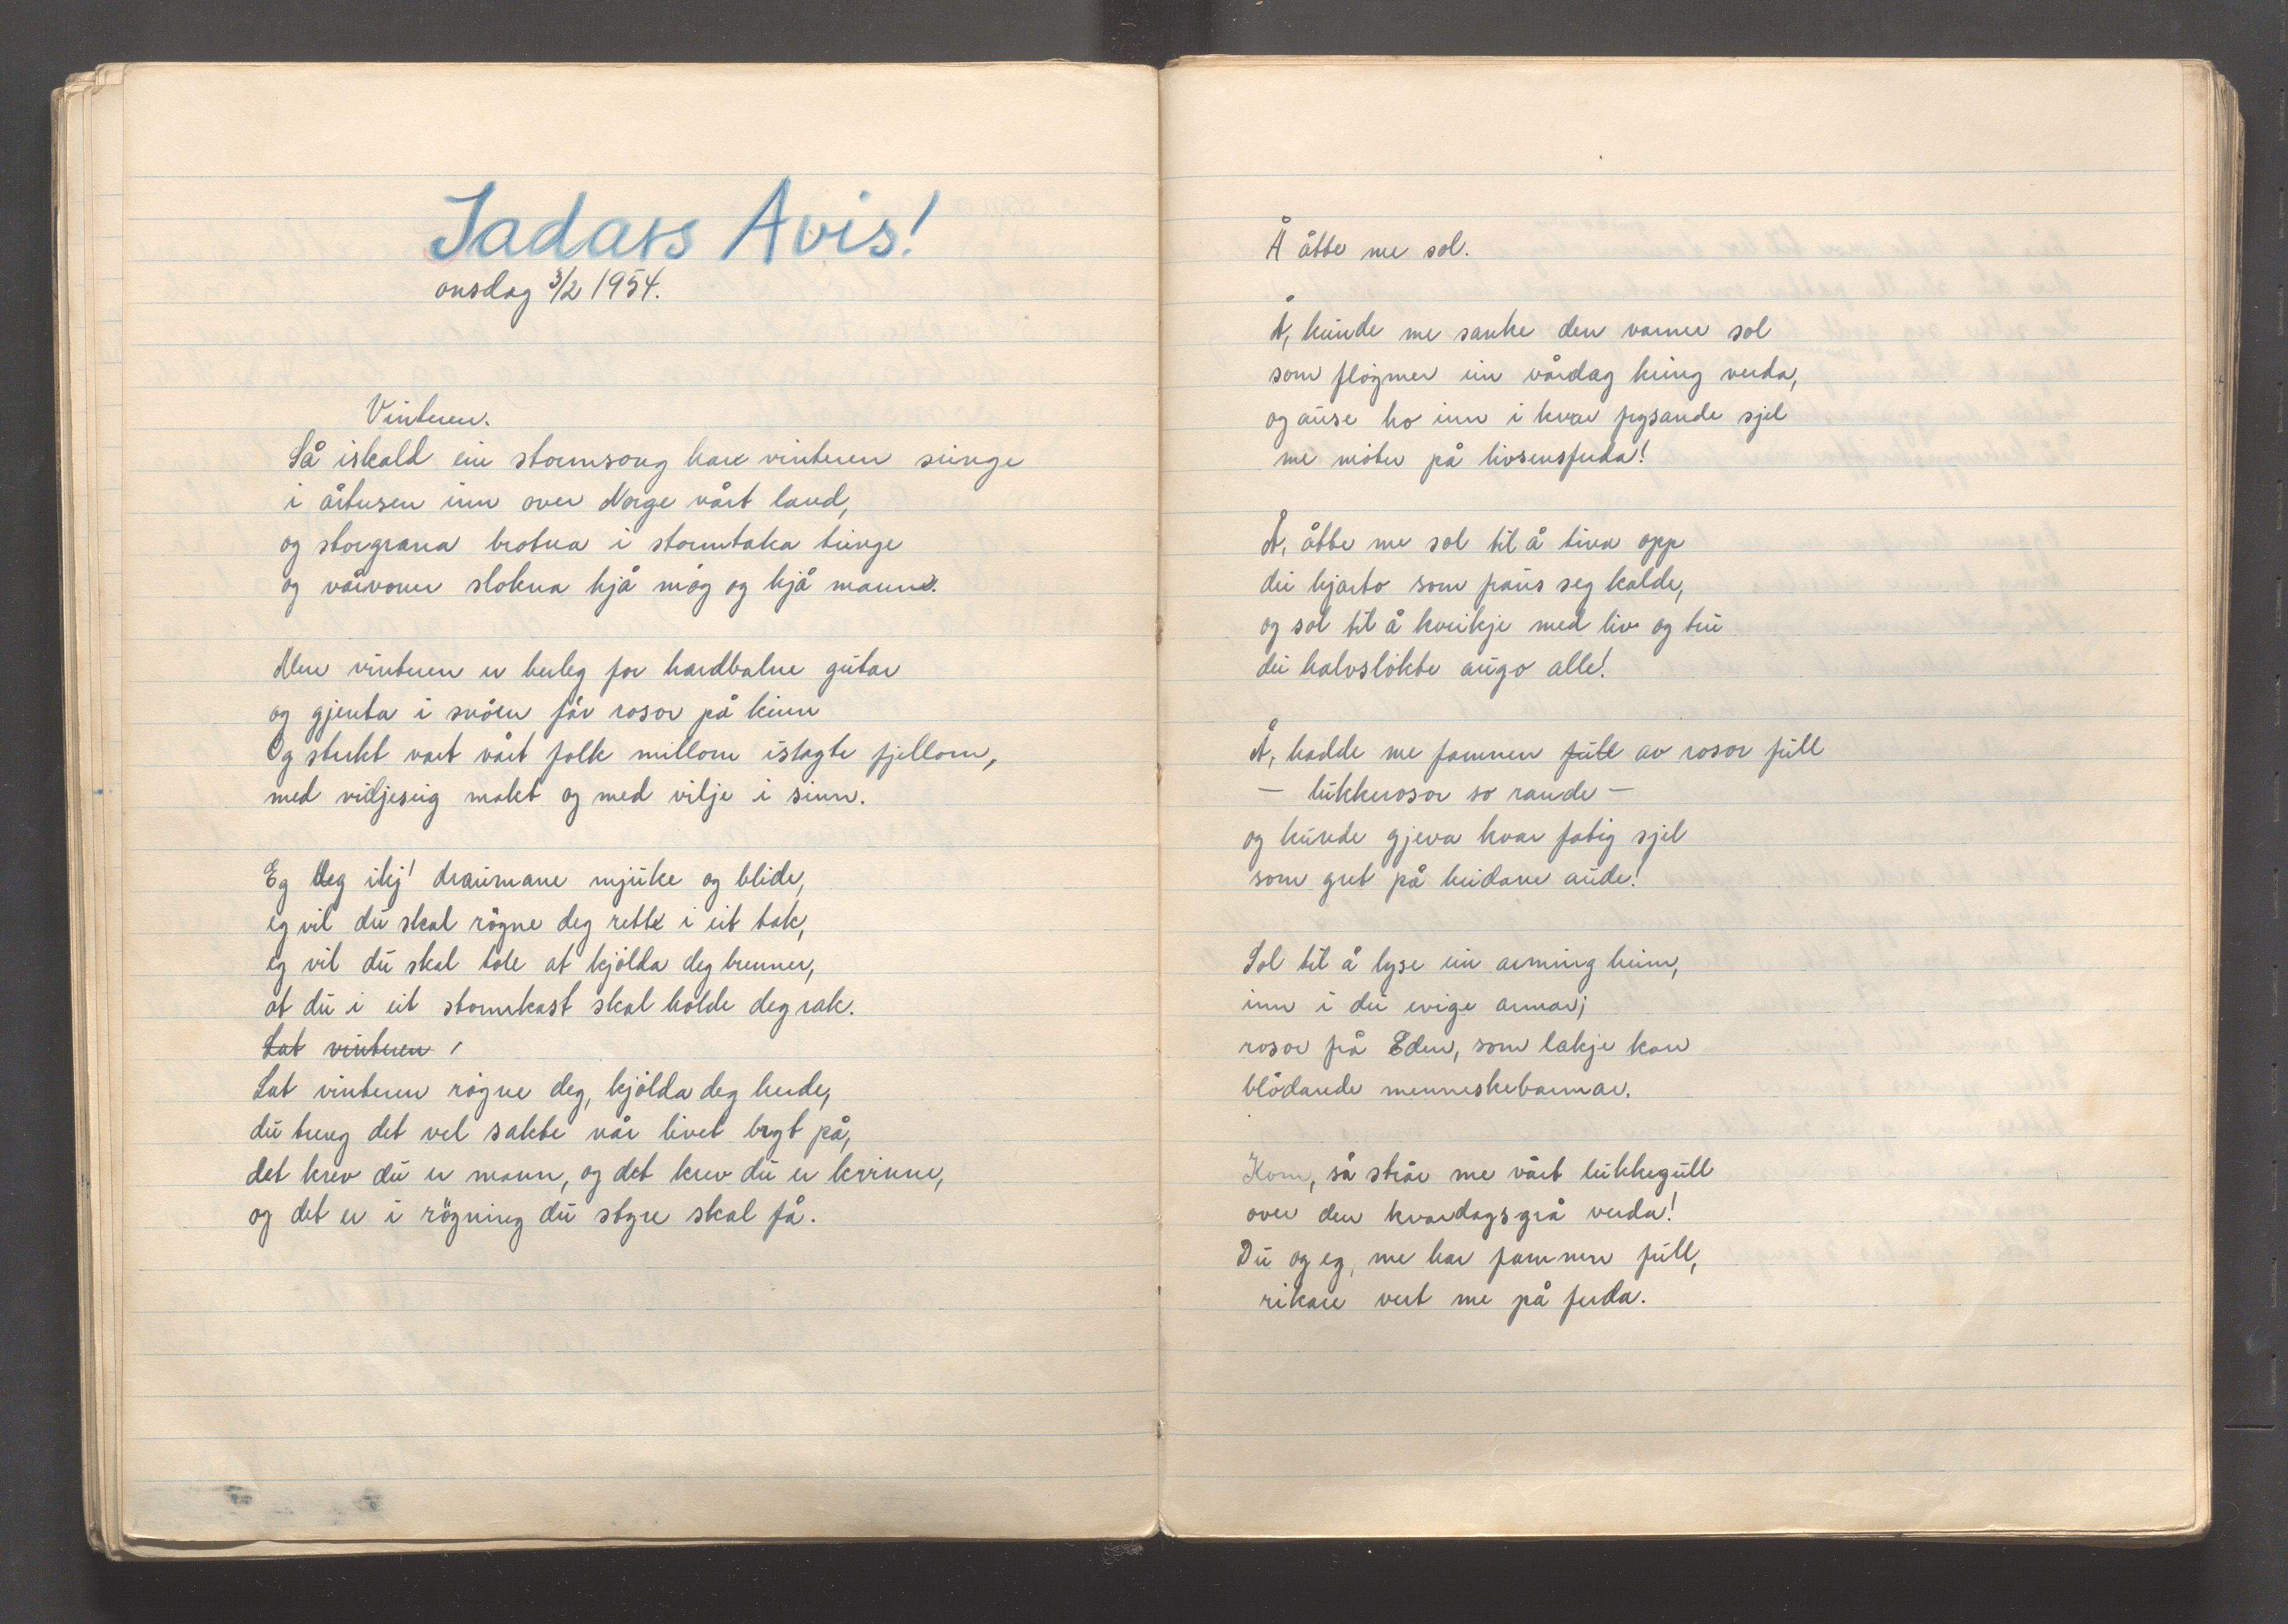 Jadars Avis!
onsdag 3/2 1954.
Vinteren.
Så iskald ein stormsong har vinteren sunge
i årtusen inn over Norge vårt land,
og storgrana brotna i stormtaka tunge
og vårvoner slokna hjå møy og hjå mann.
Men vinteren er herleg for hardbalne gutar
og gjenta i snøen får rosor på kinn
Og sterkt vart vårt folk millom islagte fjellom,
med viljeseig makt og med vilje i sinn.
Eg deg ikj' draumane mjuke og blide,
eg vil du skal røgne deg rett i eit tak,
eg vil du skal tole at kjølda deg brenner,
at du i eit stormkast skal holde deg rak.
Lat vinteren
Lat vinteren røgne deg, kjølda deg herde,
du treng det vel sakte når livet bryt på,
det krev du er mann, og det krev du er kvinne,
og det er i røgning du styre skal få.
Å åtte me sol.
Å, kunde me sanke den varme sol
som fløymer ein vårdag kring verda,
og ause ho inn i kvar frysande sjel
me møter på livsensferda!
Å, åtte me sol til å tina opp
dei hjarto som fraus seg kalde,
og sol til å kveikje med liv og tru
dei halvsløkte augo alle!
Å, hadde me famnen full av rosor full
— lukkerosor so raude —
og kunde gjeva kvar fatig sjel
som gret på heidane aude!
Sol til å lyse ein arming heim,
inn i dei evige armar;
rosor frå Eden, som lækje kan
blødande menneskebarmar.
Kom, så strår me vårt lukkegull
over den kvardagsgrå verda!
Du og eg, me har famnen full,
rikare vert me på ferda.